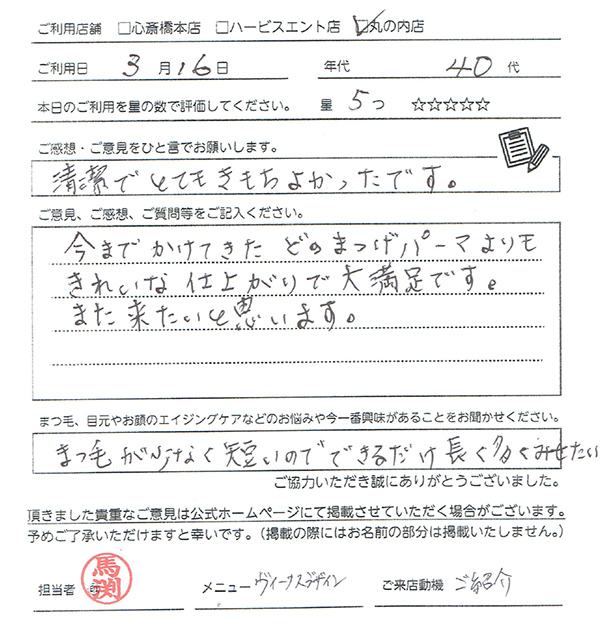 ご利用店舗 □心斎橋本店 □ハービスエント店 ☑丸の内店
ご利用日 3月16日 年代 40代
本日のご利用を星の数で評価してください。 星 5つ ☆☆☆☆☆
ご感想・ご意見をひと言でお願いします。
清潔でとてもきもちよかったです。
ご意見、ご感想、ご質問等をご記入ください。
今までかけてきたどのまつげパーマよりも
きれいな仕上がりで大満足です。
また来たいと思います。
まつ毛、目元やお顔のエイジングケアなどのお悩みや今一番興味があることをお聞かせください。
まつ毛が少なく短いのでできるだけ長く多くみせたい
ご協力いただき誠にありがとうございました。
頂きました貴重なご意見は公式ホームページにて掲載させていただく場合がございます。
予めご了承いただけますと幸いです。(掲載の際にはお名前の部分は掲載いたしません。)
担当者 馬渕 メニュー ヴィーナスデザイン ご来店動機 ご紹介